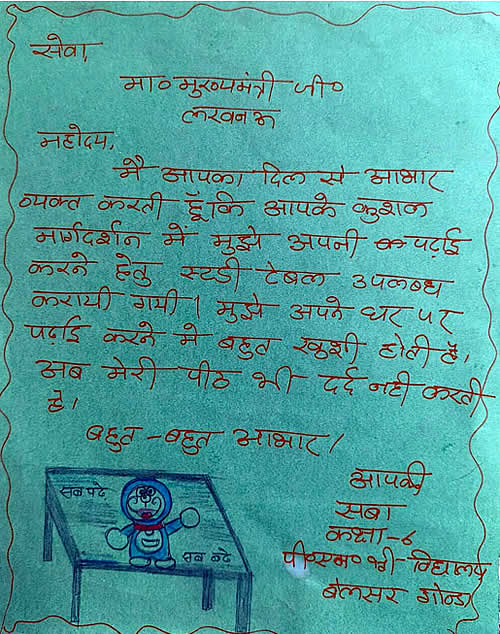 सेवा,
मा० मुख्यमंत्री जी०
लखनऊ
महोदय,
मै आपका दिल से आभार
व्यक्त करती हूँ कि आपके कुशल
मार्गदर्शन में मुझे अपनी पढ़ाई
करने हेतु स्टडी टेबल उपलब्ध
करायी गयी। मुझे अपने घर पर
पढ़ाई करने मे बहुत खुशी होती है।
अब मेरी पीठ भी दर्द नही करती
है।
बहुत-बहुत आभार।
आपकी
सबा
कक्षा-6
पी०एम० श्री-विद्यालय
बेलसर गोन्डा
सब पढे
सब बढे